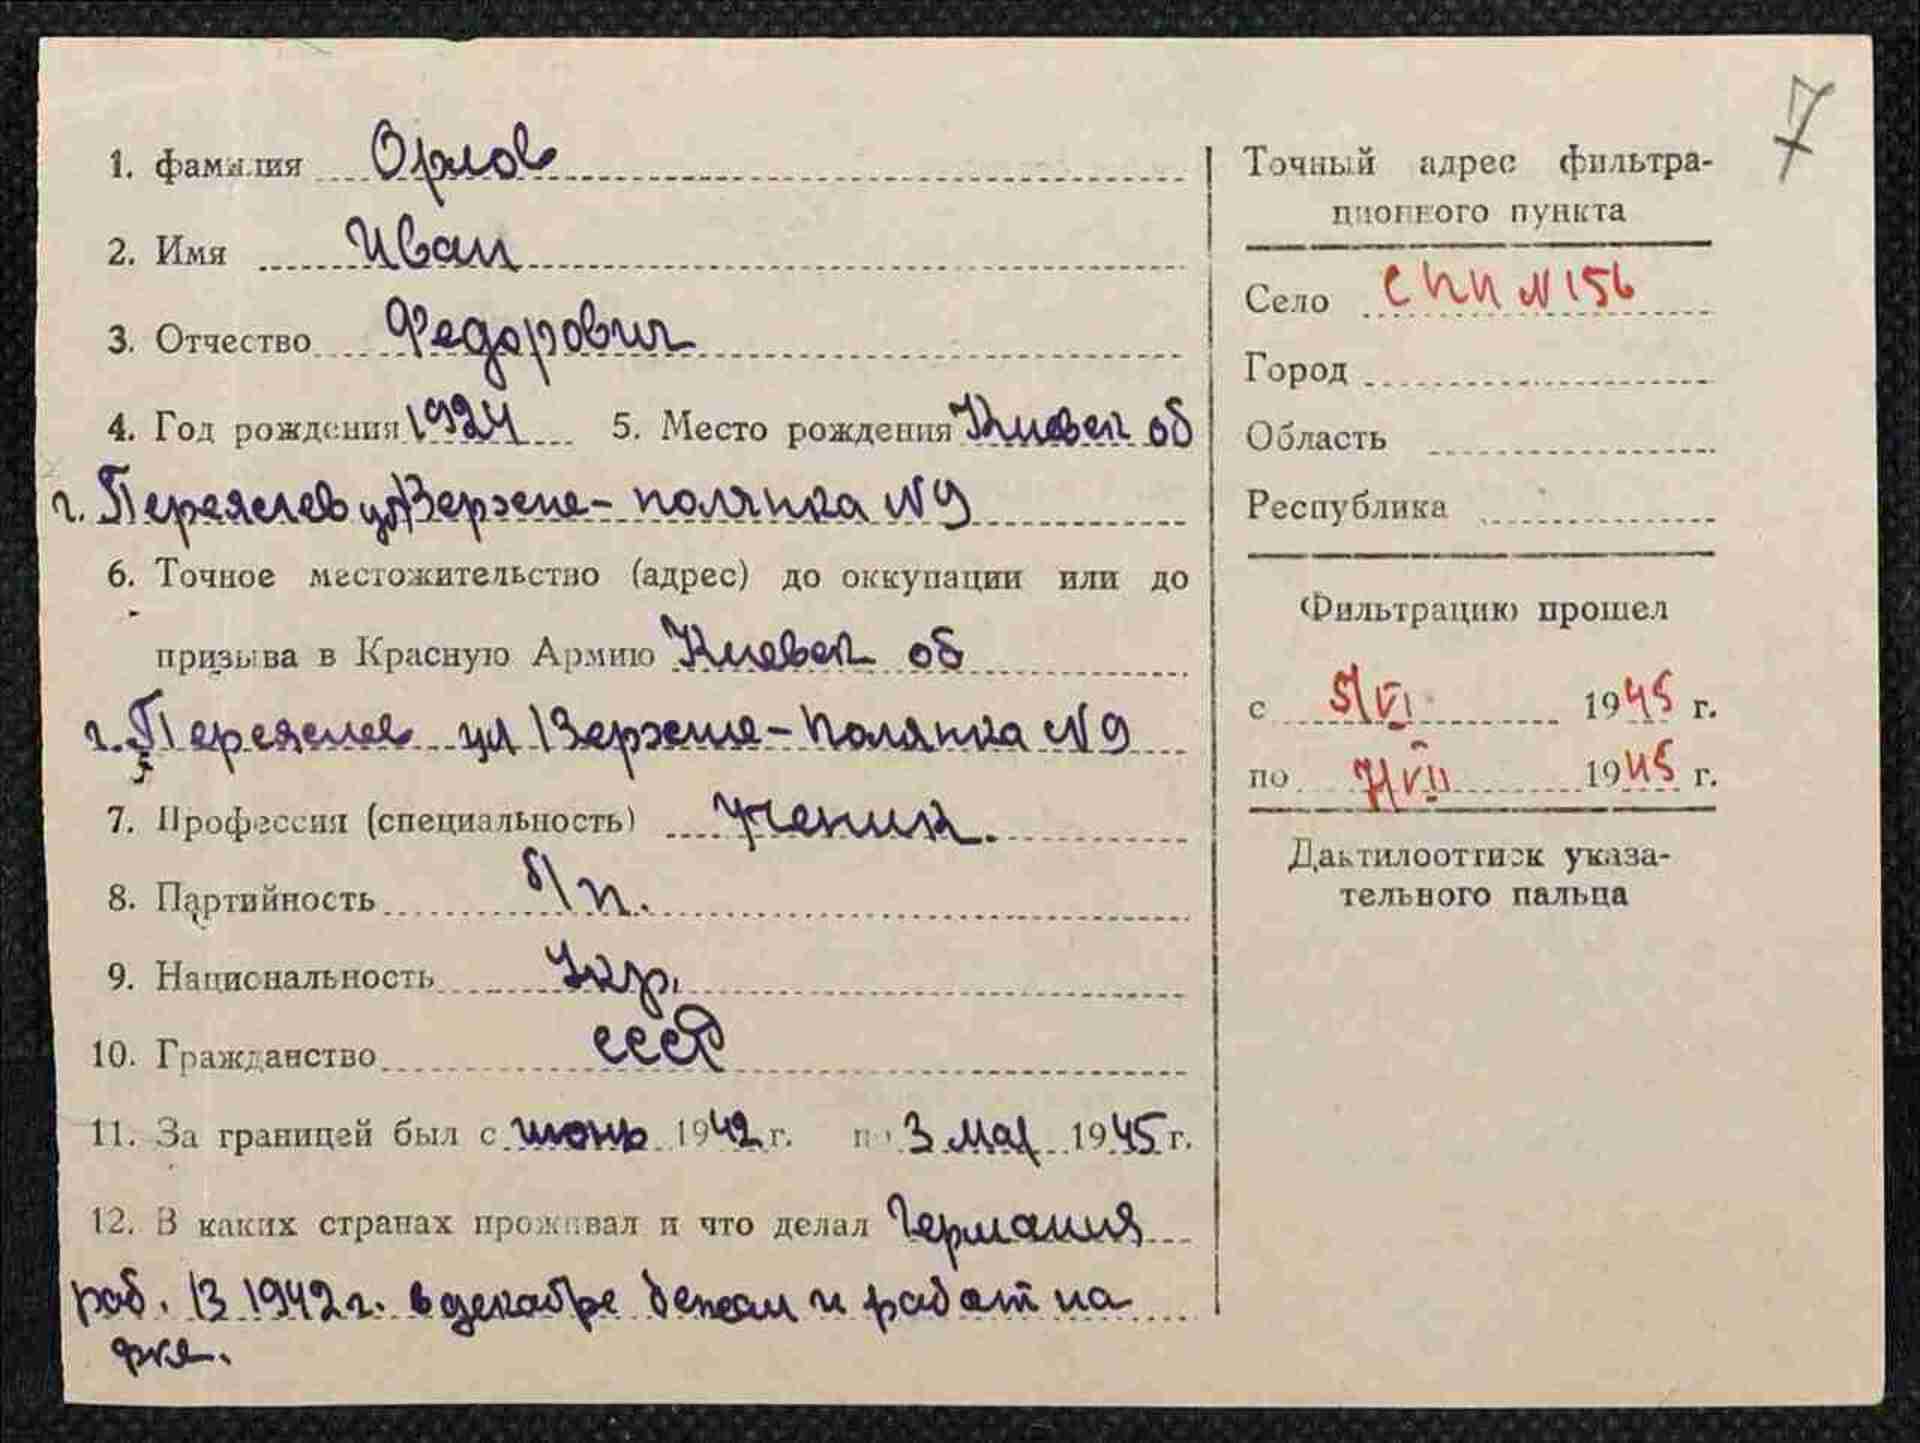 7
1. фамилия Орлов
2. Имя Иван
3. Отчество Федорович
4. Год рождения 1924 5. Место рождения Киевск об
г. Переяслев ул Верхне-полянка №9
6. Точное местожительство (адрес) до оккупации или до
призыва в Красную Армию Киевск об
г. Переяслев ул Верхне-Полянка №9
7. Профессия (специальность) ученик.
8. Партийность б/п.
9. Национальность Укр.
10. Гражданство СССР
11. За границей был с июнь 1942 г. по 3 мая 1945 г.
12. В каких странах проживал и что делал Германия
раб. В 1942 г. в декабре бежал и работ на
Точный адрес фильтра-
ционного пункта
Село СПП №156
Город
Область
Республика
Фильтрацию прошел
с 5/VI 1945 г.
по 7/VII 1945 г.
Дактилооттиск указа-
тельного пальца